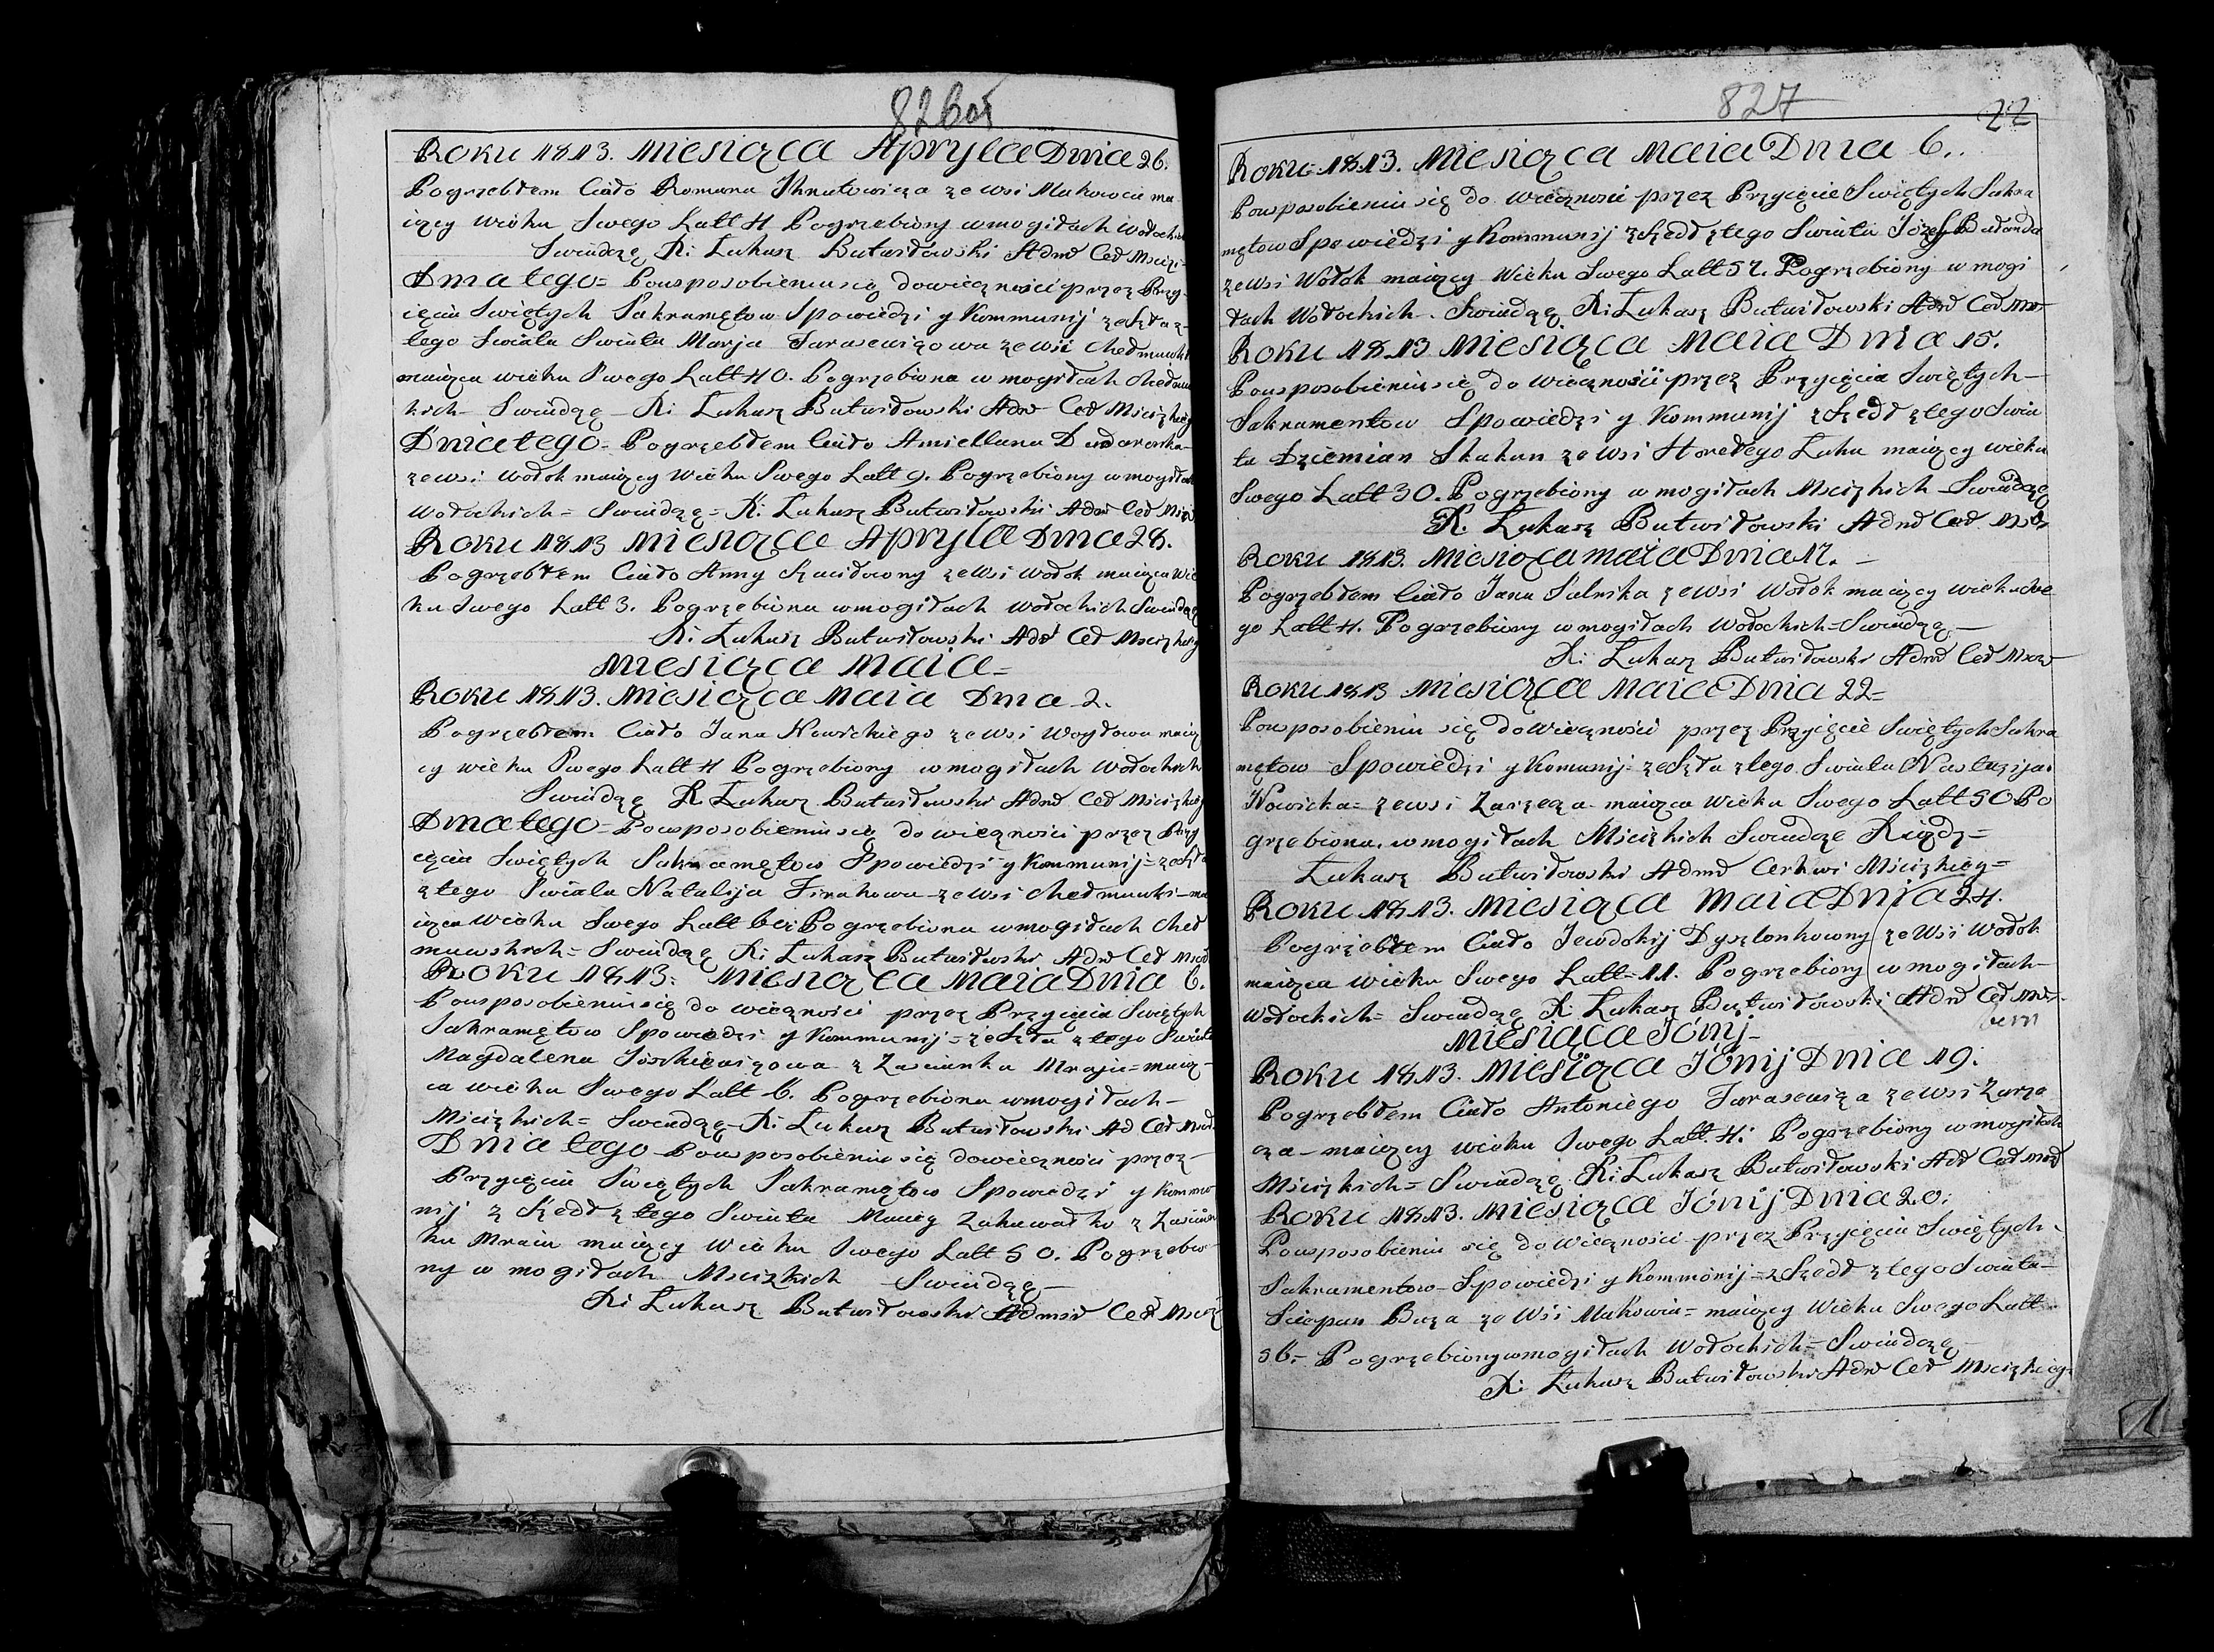 826об
Roku 1813. Miesiąca Apryla Dnia 26.
Pogrzebłem Ciało Romana Ihnatowicza ze wsi ma
iący wieku Swego Latt 4 Pogrzebiony w mogiłach Wołochich
Swiadzę X: Łukasz Butwiłowski Admr Cer Mscizki
Dnia tego = Pousposobieniu się do wieczności przez Przy
ięcia Swiętych Sakramętow Spowiedzi y Kommunij zeszła z
tego Swiata Swiata Marja Tarasewiczowa ze wsi
maiąca wieku Swego Latt 40. Pogrzebiona w mogiłach
kich - Swiadzę - X: Łukasz Butwiłowski Admr Cer Mscizkiey
Dnia tego - Pogrzebłem Ciało Amiellana
ze wsi Wołok maiący wieku Swego Latt 9. Pogrzebiony w mogiłach
Wołochich = Swiadzę = X: Łukasz Butwiłowski Admr Cer
Roku 1813 Miesiąca Apryla Dnia 28.
Pogrzebłem Ciało Anny ze wsi Wołok maiąca wie
ku Swego Latt 3. Pogrzebiona w mogiłach Wołochich Swiadzę
X: Łukasz Butwiłowski Admr Cer Mscizkiey
Miesiąca Maia =
Roku 1813. Miesiąca Maia Dnia 2.
Pogrzebłem Ciało Jana Nowickiego ze wsi maią
cy wieku Swego Latt 4 Pogrzebiony w mogiłach Wołochich
Swiadzę X Łukasz Butwiłowski Admr Cer Mscizkiey
Dnia tego - Pousposobieniu się do wieczności przez Przy
ięcia Swiętych Sakramętow Spowiedzi y Kommunij = zeszła
z tego Swiata Natalija ze wsi - ma
iąca wieku Swego Latt Pogrzebiona w mogiłach
= Swiadzę X: Łukasz Butwiłowski Admr Cer
Roku 1813: Miesiąca Maia Dnia 6.
Pousposobieniu się do wieczności przez Przyięcia Swiętych
Sakramętow Spowiedzi y Kommunij = zeszła z tego Swiata
Magdalena z Zascianka = maią-
ca wieku Swego Latt 6. Pogrzebiona w mogiłach -
Mscizkich = Swiadzę - X: Łukasz Butwiłowski Ad Cer
Dnia tego - Pousposobieniu się do wieczności przez -
Przyięcia Swiętych Sakramętow Spowiedzi y Kommu
nij z szedł z tego Swiata Maciey z Zascian
ku maiący Wieku Swego Latt 50. Pogrzebio
ny w mogiłach Mscizkich Swiadzę -
X: Łukasz Butwiłowski Cer
827
22
Roku 1813. Miesiąca Maia Dnia 6..
Pousposobieniu się do wieczności przez Przyięcie Swiętych Sakra
mętow Spowiedzi y Kommunij z szedł z tego Swiata Józef
ze wsi Wołok maiący Wieku Swego Latt 57. Pogrzebiony w mogi
łach Wołochich. Swiadzę X: Łukasz Butwiłowski Admr Cer
Roku 1813 Miesiąca Maia Dnia 15.
Pousposobieniu się do wieczności przez Przyięcia Swiętych -
Sakramentow Spowiedzi y Kommunij z szedł z tego Swia
ta Dziemian Skakun ze wsi Horełego Łuhu maiący wieku
Swego Latt 30. Pogrzebiony w mogiłach Mscizkich Swiadzę
X. Łukasz Butwiłowski Admr Cer
Roku 1813. Miesiąca Maia Dnia 17. -
Pogrzebłem Ciało Jana ze wsi Wołok maiący wieku Swe
go Latt 4. Pogrzebiony w mogiłach Wołochich = Swiadzę -
X: Łukasz Butwiłowski Admr Cer
Roku 1813 Miesiąca Maia Dnia 22 =
Pousposobieniu się do Wieczności przez Przyięcie Swiętych Sakra
mętow Spowiedzi y Komunij - zeszła z tego Swiata Nastazija
Nowicka = ze wsi Zarzecza - maiąca wieku Swego Latt 50 Po
grzebiona w mogiłach Mscizkich Swiadzę Xiądz =
Łukasz Butwiłowski Admr Cerkwi Mscizkiey =
Roku 1813. Miesiąca Maia Dnia 24.
Pogrzebłem Ciało Jewdokij ze wsi Wołok
maiąca wieku Swego Latt = 11. Pogrzebiony w mogiłach -
Wołochich = Swiadzę X Łukasz Butwiłowski Admr Cer
Miesiąca Jónij -
Roku 1813. Miesiąca Jónij Dnia 19.
Pogrzebłem Ciało Antoniego Tarasewicza ze wsi Zarze
cza - maiący wieku Swego Latt 4: Pogrzebiony w mogiłach
Mscizkich = Swiadzę X: Łukasz Butwiłowski Adr Cer
Roku 1813. Miesiąca Jónij Dnia 20:
Pousposobieniu się do wieczności przez Przyięcia Swiętych
Sakramentow - Spowiedzi y Kommónij = z szedł z tego Swiata -
Sciepan ze Wsi = maiący Wieku Swego Latt
56. - Pogrzebiony w mogiłach Wołochich = Swiadzę -
X: Łukasz Butwiłowski Admr Cer Mscizkiey